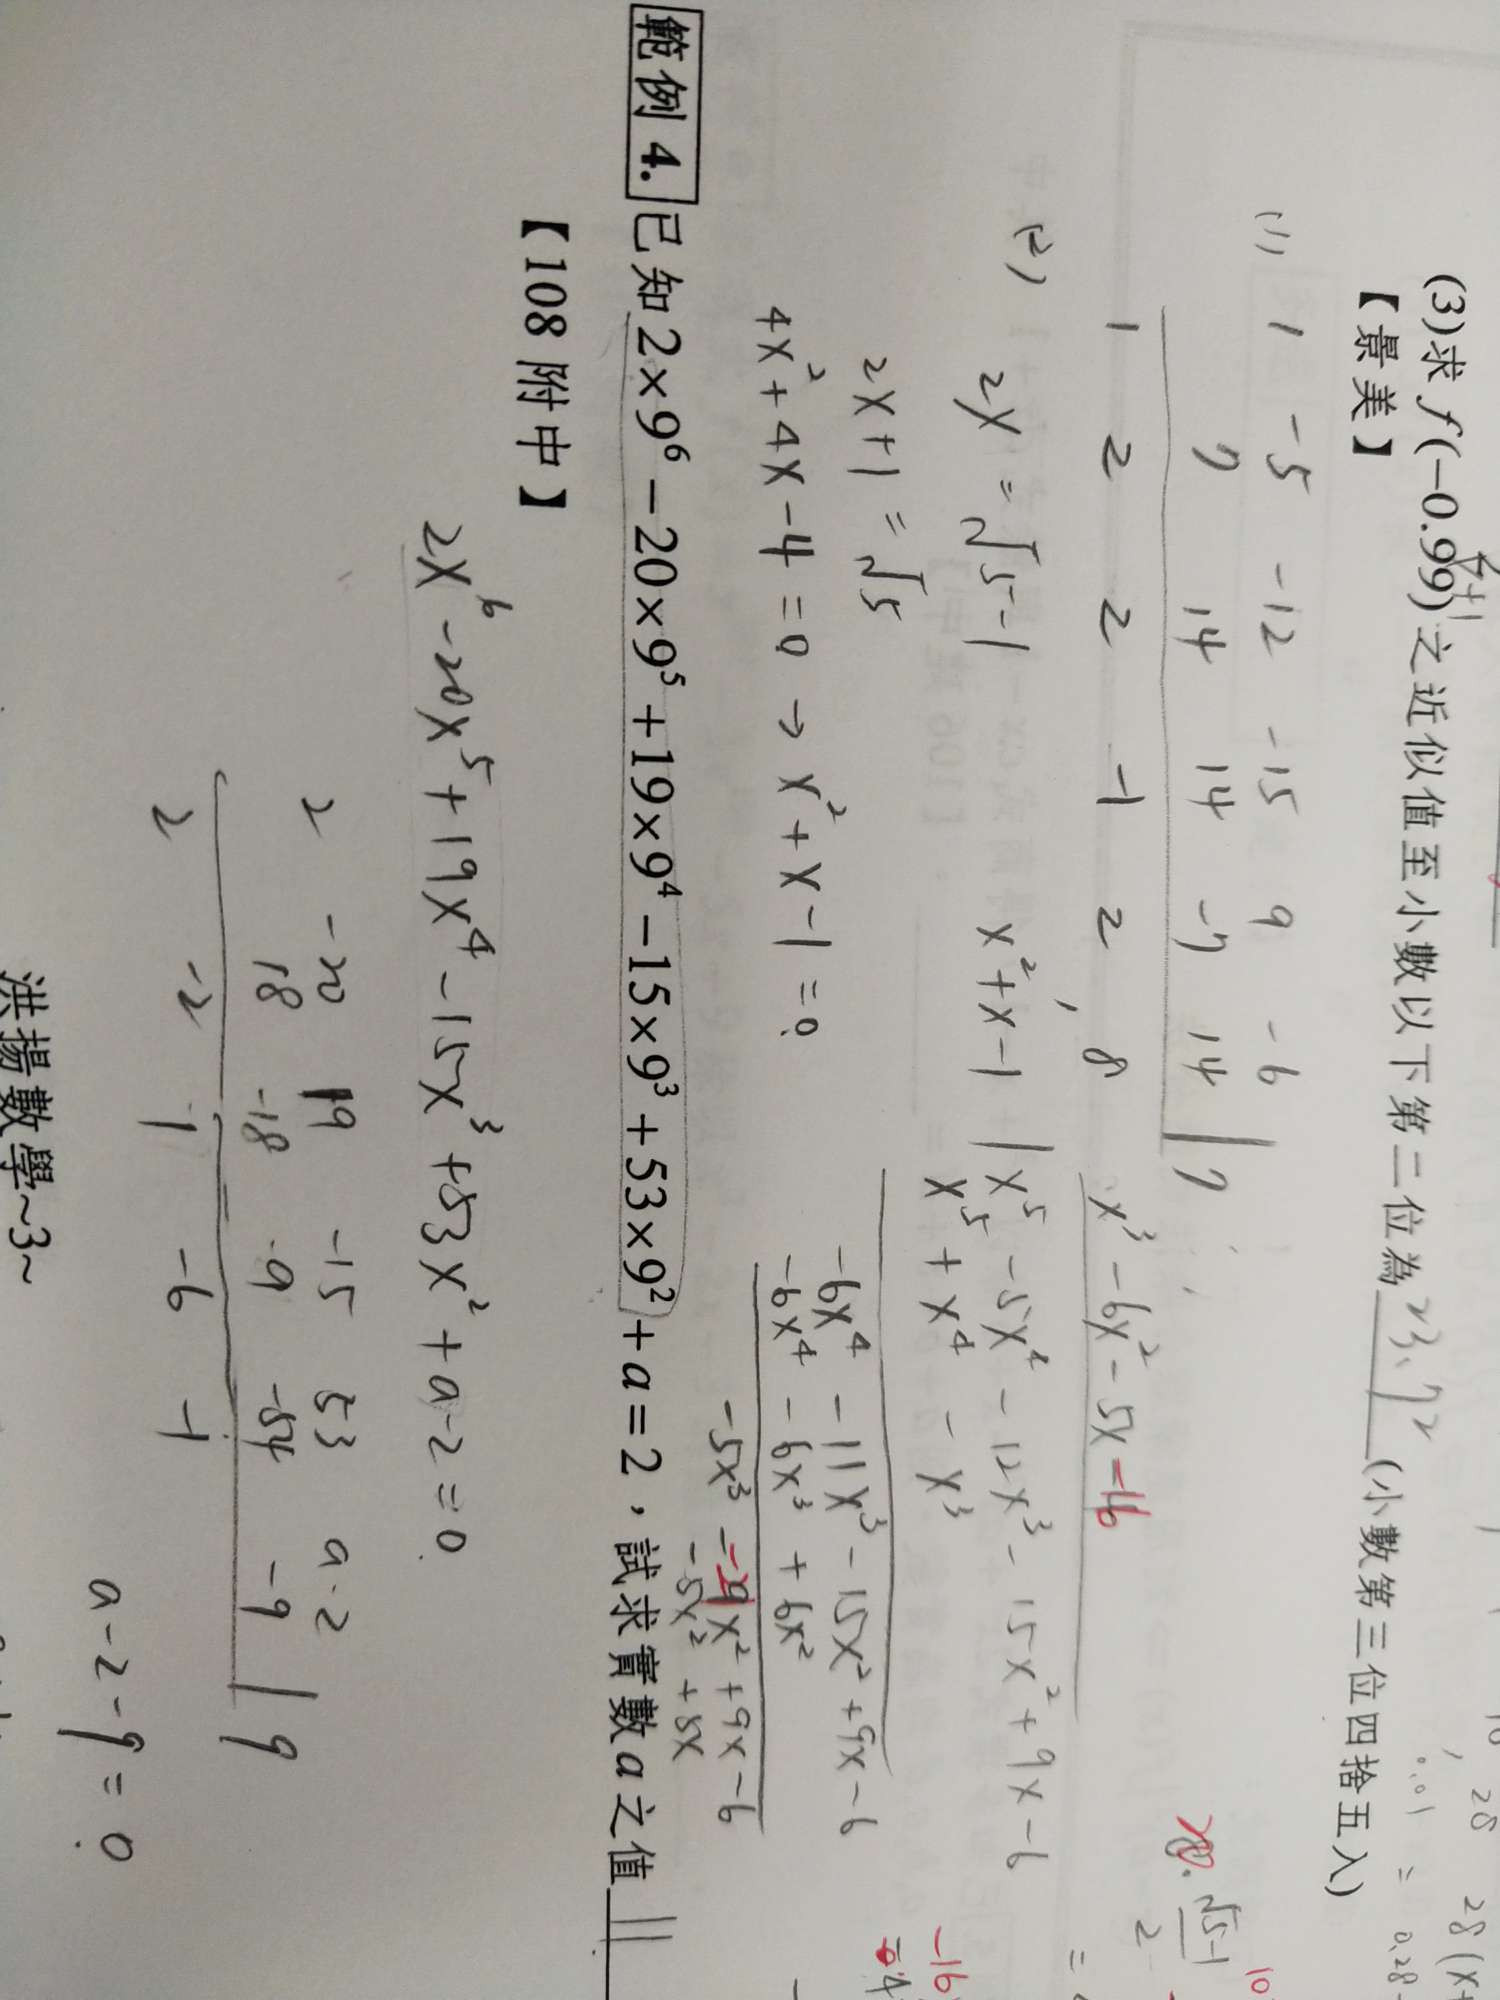 (3)求 f(-0.99)之近似值至小數以下第二位為 23.72 (小數第三位四捨五入)
【景美】
(1) 1 -5 -12 -15 9 -6
7 14 14 -7 14 | 7
1 2 2 -1 2, 8
(2) 2x = √5-1
2x+1 = √5
4x²+4x-4=0 → x²+x-1=0
x³-6x²-5x-16
x²+x-1 | x⁵-5x⁴-12x³-15x²+9x-6
x⁵+x⁴-x³
-6x⁴-11x³-15x²+9x-6
-6x⁴-6x³+6x²
-5x³-21x²+9x-6
-5x²+5x
範例 4. 已知2×9⁶-20×9⁵+19×9⁴-15×9³+53×9²+a=2,試求實數a之值 11
【108 附中】
2x⁶-20x⁵+19x⁴-15x³+53x²+a-2=0
2 -20 19 -15 53 a-2
18 -18 9 -54 -9 | 9
2 -2 1 -6 -1
a-2-9=0
洪揚數學~3~